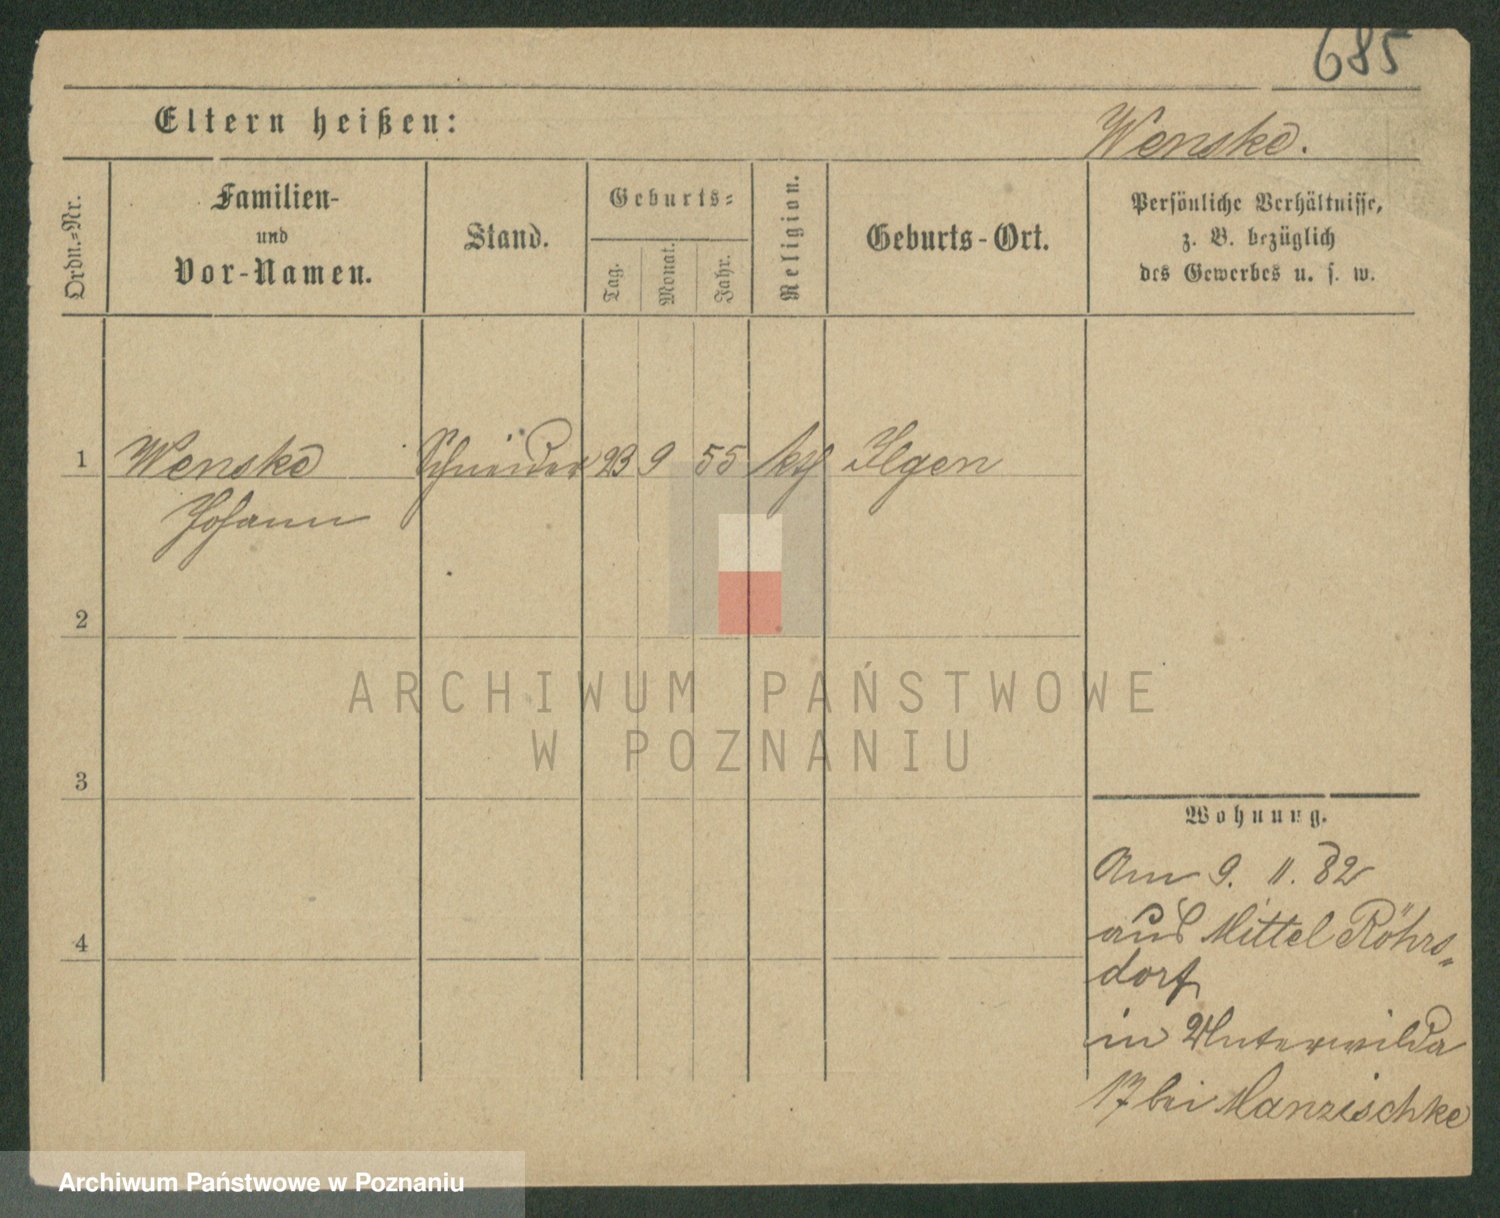 685
Eltern heißen:
Wenske.
Ordn.-Nr.
Familien-
und
Vor-Namen.
Stand.
Geburts-
Tag.
Monat.
Jahr.
Religion.
Geburts-Ort.
Persönliche Verhältnisse,
z. B. bezüglich
des Gewerbes u. s. w.
1 Wenske Schneider 23 9 55 kth Ilgen
Johann
2
3
4
Wohnung.
Am 9. 11. 82
aus Mittel Röhrs-
dorf
in Unterwilda
17 bei Manzischke
ARCHIWUM PAŃSTWOWE
W POZNANIU
Archiwum Państwowe w Poznaniu